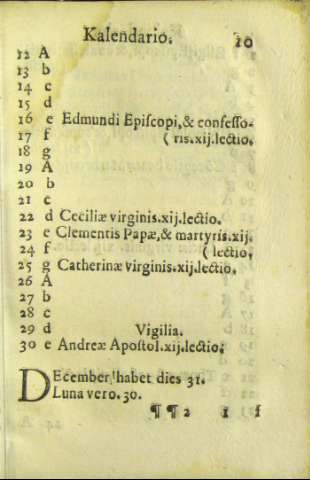 Kalendario. 20
12 A
13 b
14 c
15 d
16 e Edmundi Epiſcopi,& confeſſo-
17 f (ris.xij.lectio.
18 g
19 A
20 b
21 c
22 d Ceciliæ virginis.xij.lectio.
23 e Clementis Papæ,& martyris.xij.
24 f (lectio,
25 g Catherinæ virginis.xij.lectio,
26 A
27 b
28 c
29 d Vigilia.
30 e Andreæ Apoſtol.xij.lectio,
DEcember habet dies 31.
Luna vero.30.
¶¶2 1 f